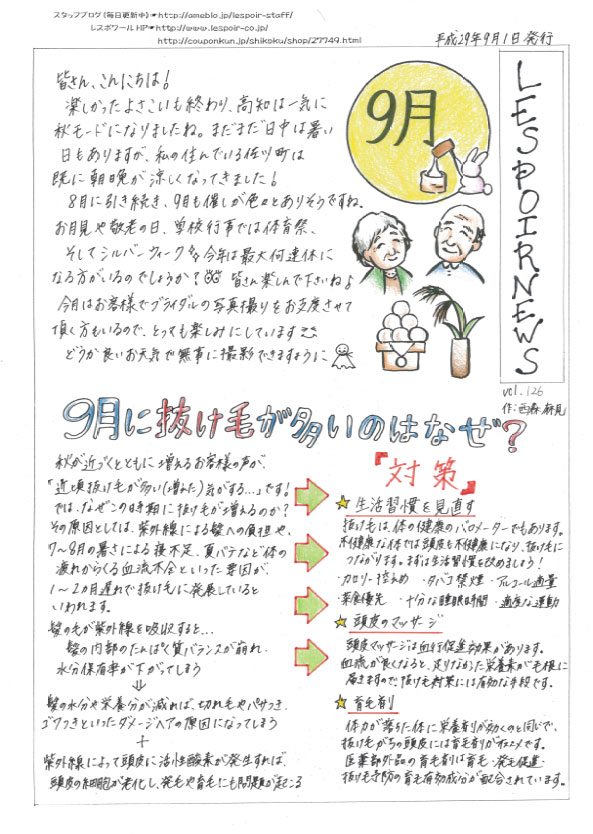 スタッフブログ(毎日更新中)☛http://ameblo.jp/lespoir-staff/
レスポワールHP☛http://www.lespoir-co.jp/
http://couponkun.jp/shikoku/shop/27749.html
平成29年9月1日発行
LESPOIRNEWS
vol.126
作:西森 麻見
9月
皆さん、こんにちは!
楽しかったよさこいも終わり、高知は一気に
秋モードになりましたね。まだまだ日中は暑い
日もありますが、私の住んでいる佐川町は
既に朝晩が涼しくなってきました!
8月に引き続き、9月も催しが色々とありそうですね。
お月見や敬老の日、学校行事では体育祭、
そしてシルバーウィーク 今年は最大何連休に
なる方がいるのでしょうか? 皆さん楽しんで下さいね♪
今月はお客様でブライダルの写真撮りをお支度させて
頂く方もいるので、とっても楽しみにしています
どうか良いお天気で無事に撮影できますように
9月に抜け毛が多いのはなぜ?
秋が近づくとともに増えるお客様の声が、
「近頃抜け毛が多い(増えた)気がする…」です!
では、なぜこの時期に抜け毛が増えるのか?
その原因としては、紫外線による髪への負担や、
7〜8月の暑さによる寝不足、夏バテなど体の
疲れからくる血流不全といった要因が、
1〜2カ月遅れで抜け毛に発展していると
いわれます。
髪の毛が紫外線を吸収すると…
髪の内部のたんぱく質バランスが崩れ、
水分保有率が下がってしまう
⇓
髪の水分や栄養分が減れば、切れ毛やパサつき、
ゴワつきといったダメージヘアの原因になってしまう
+
紫外線によって頭皮に活性酸素が発生すれば、
頭皮の細胞が老化し、発毛や育毛にも問題が起こる
『対策』
★生活習慣を見直す
抜け毛は、体の健康のバロメーターでもあります。
不健康な体では頭皮も不健康になり、抜け毛に
つながります。まずは生活習慣を改めましょう!
・カロリー控えめ ・タバコ禁煙 ・アルコール適量
・菜食優先 ・十分な睡眠時間 ・適度な運動
★頭皮のマッサージ
頭皮マッサージは血行促進効果があります。
血流が良くなると、足りなかった栄養素が毛根に
届きますので、抜け毛対策には有効な手段です。
★育毛剤
体力が落ちた体に栄養剤が効くのと同じで、
抜け毛がちの頭皮には育毛剤がオススメです。
医薬部外品の育毛剤は育毛・発毛促進・
抜け毛予防の育毛有効成分が配合されています。